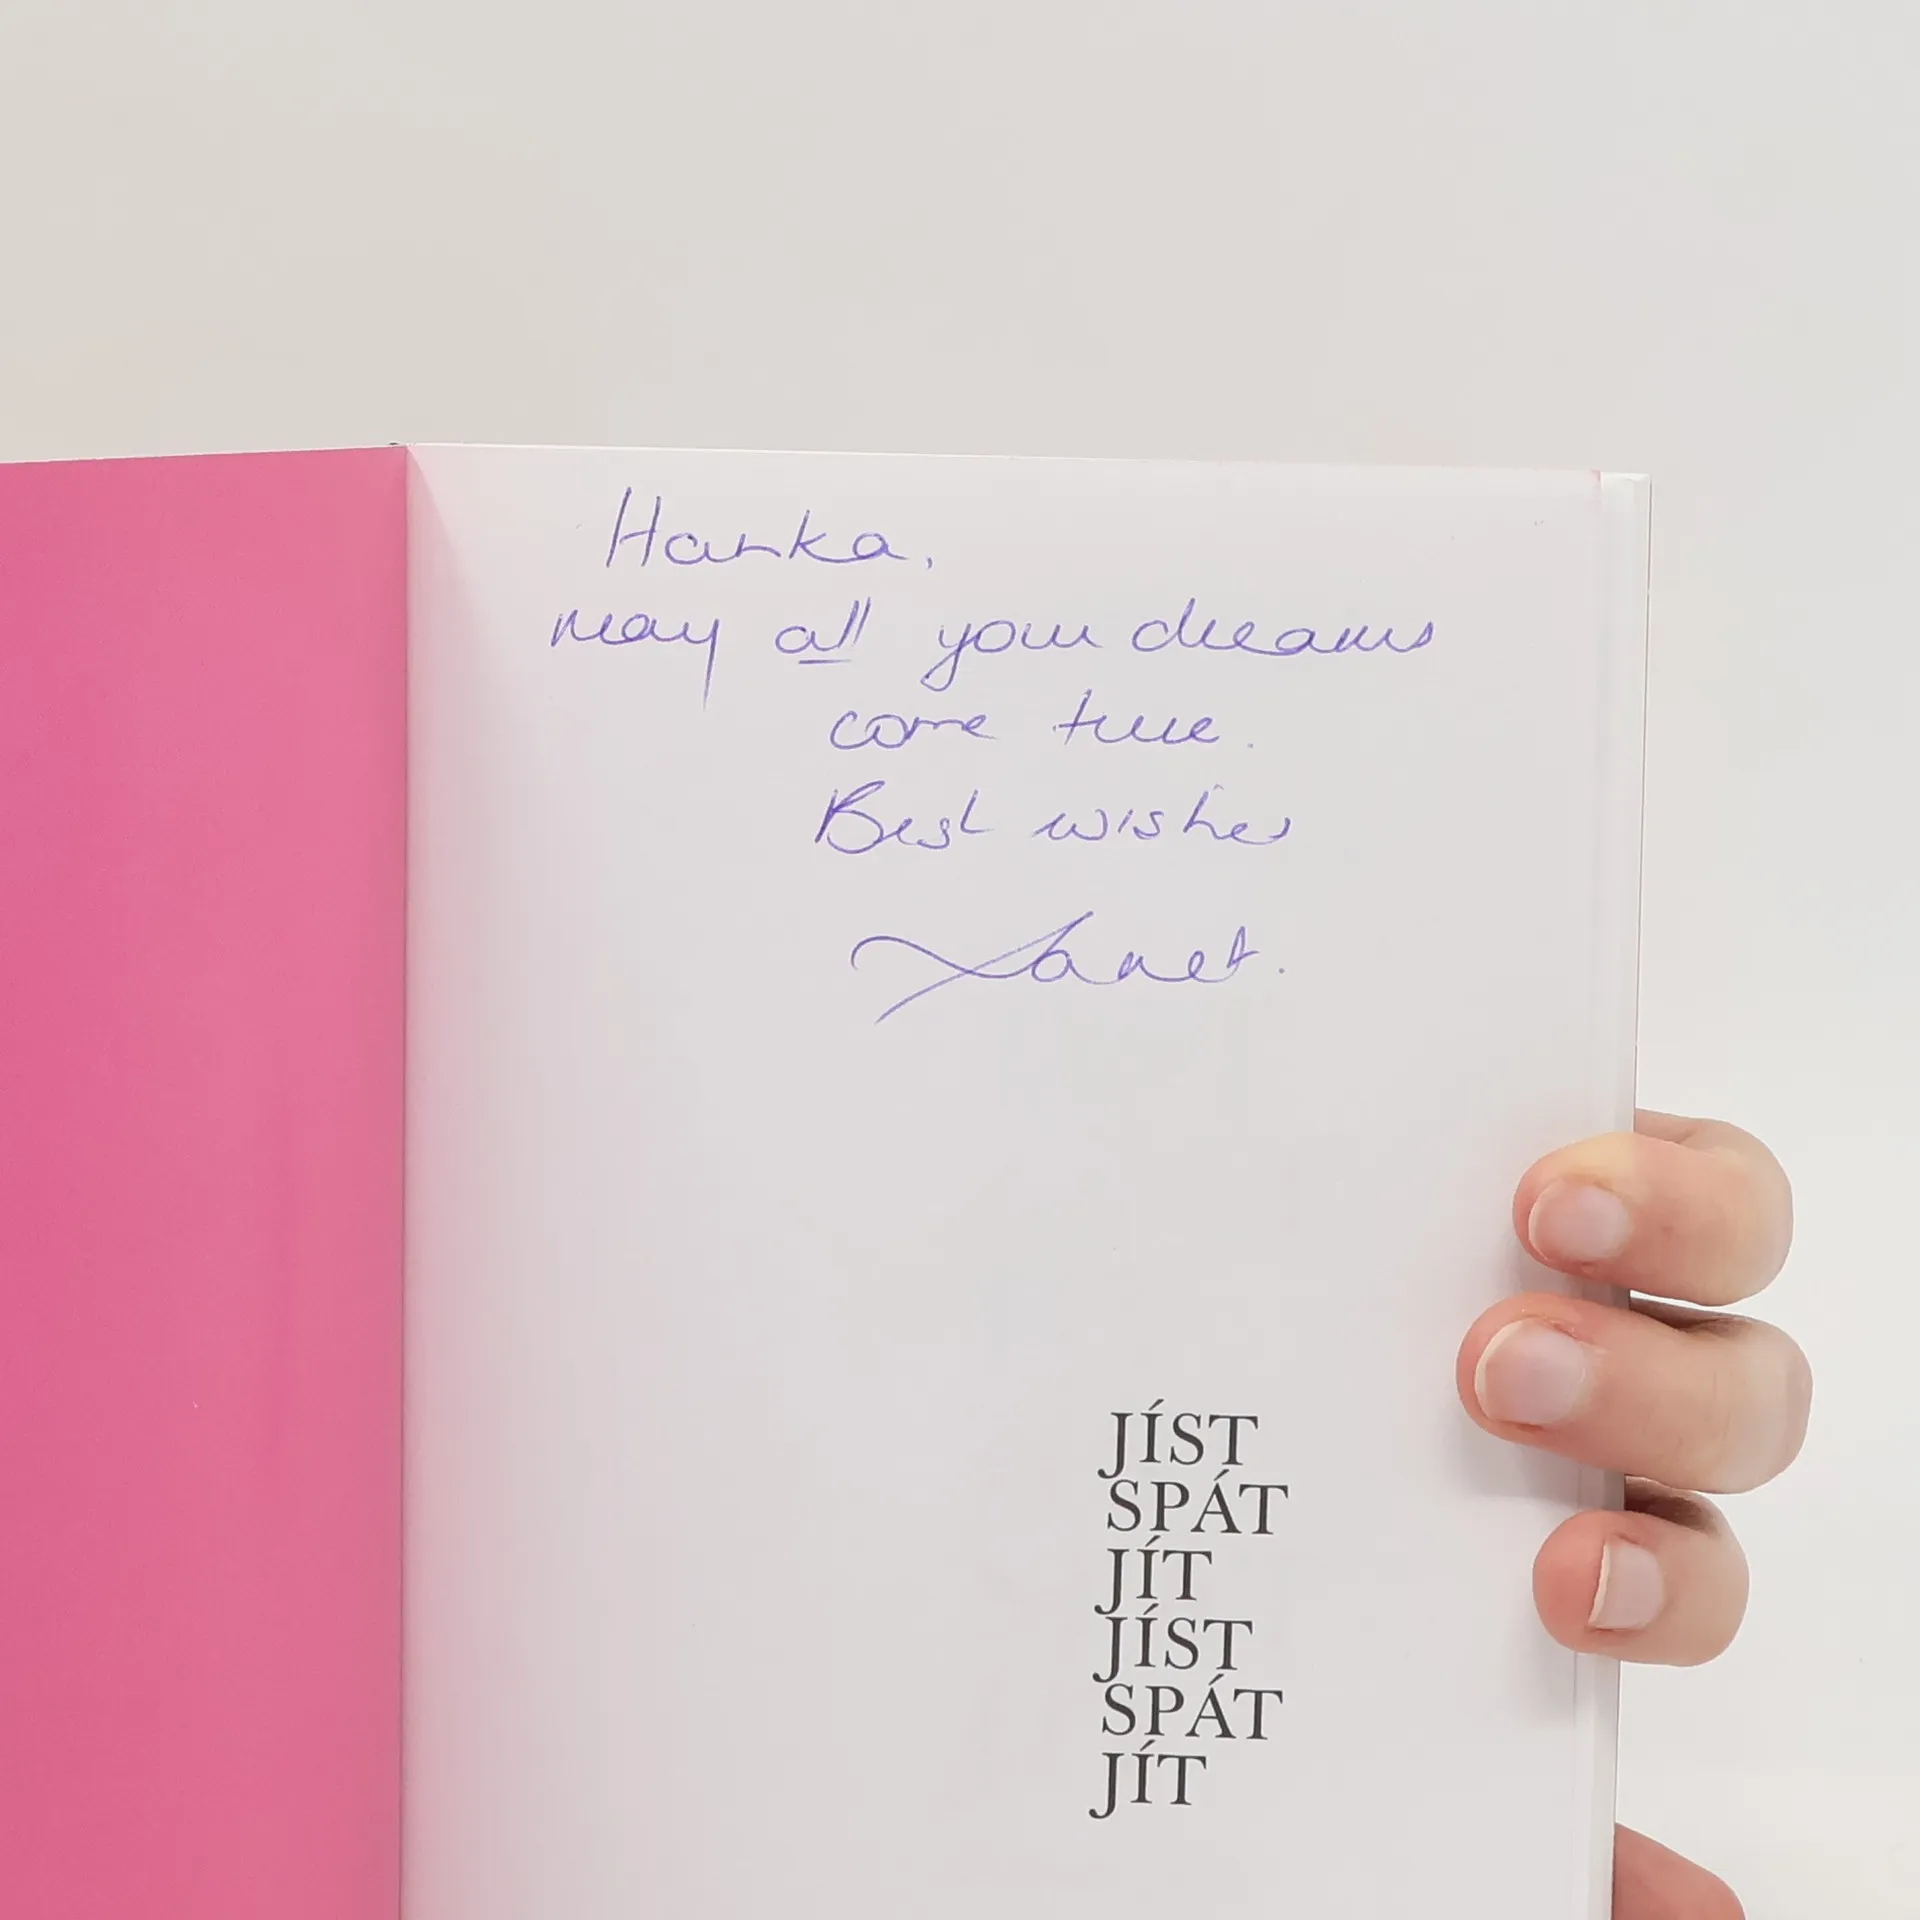 Hanka,
may all your dreams
come true.
Best wishes
Janet.
JÍST
SPÁT
JÍT
JÍST
SPÁT
JÍT